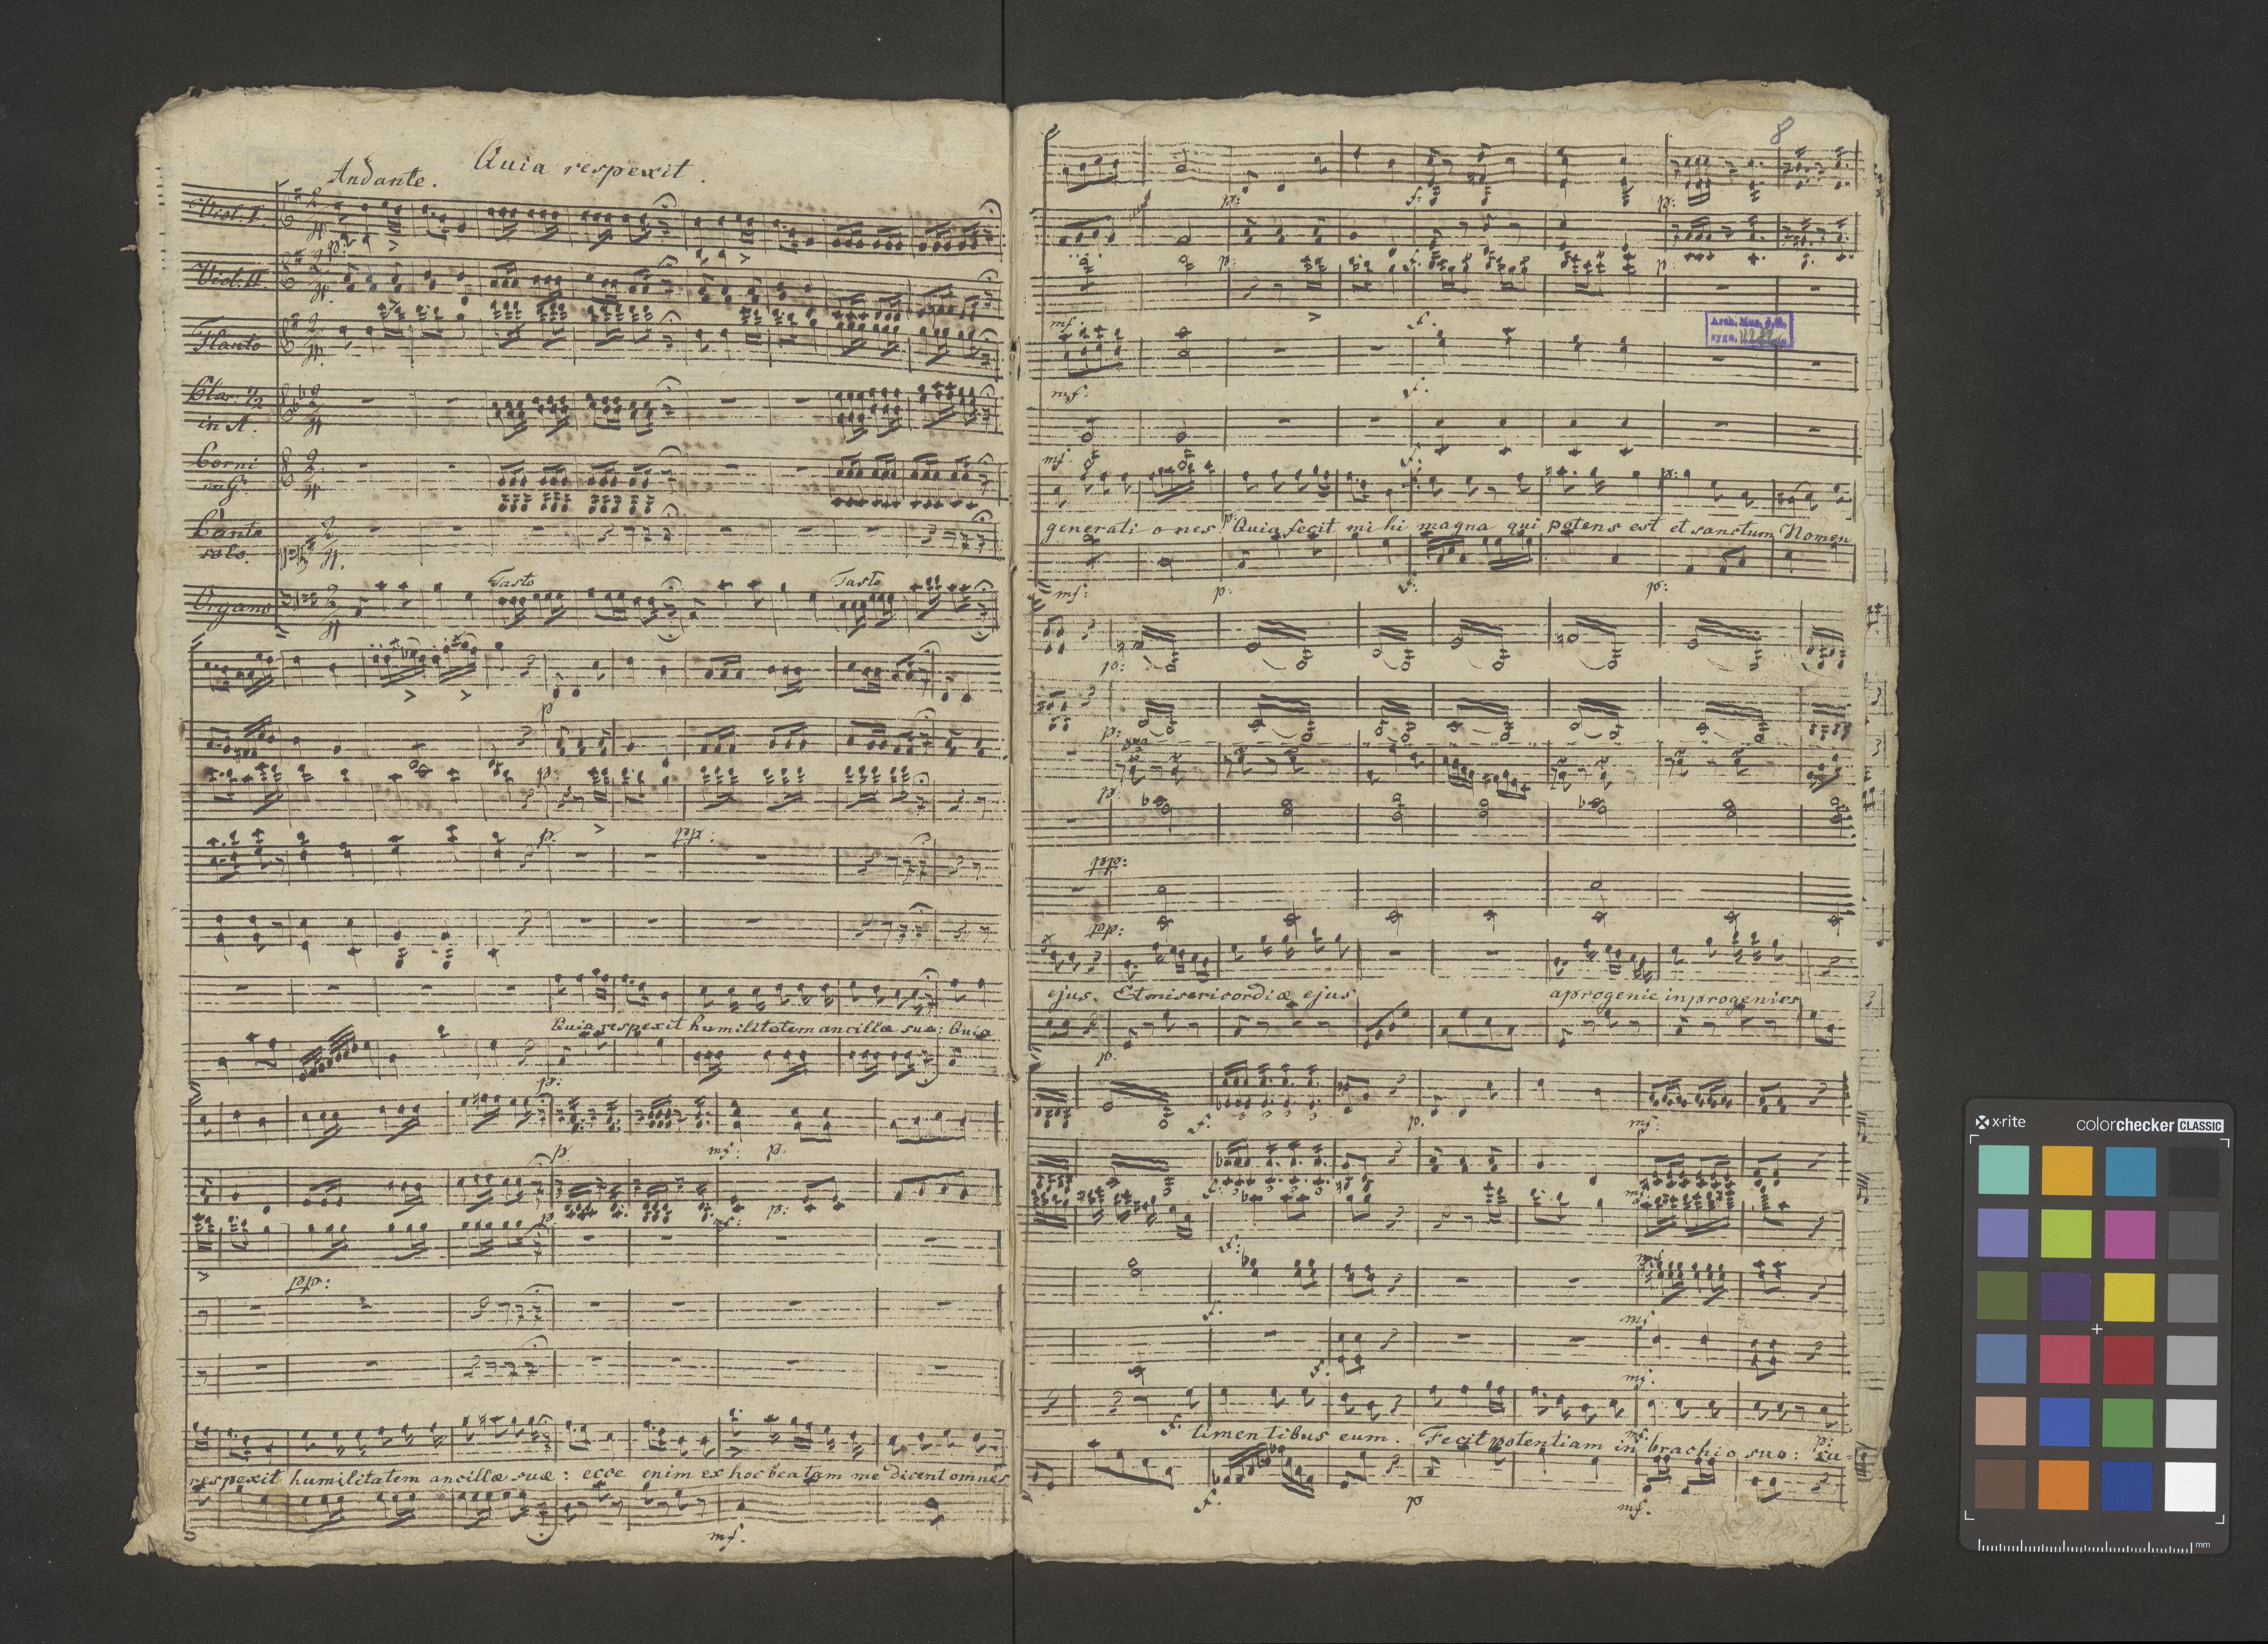 Quia respexit.
Andante.
Viol. I.
p:
Viol. II
Flauto
Clar: 1/2
in A.
Corni
in G.
Canto
solo.
Tasto Tasto
Organo
p
p:
p. tet:
Quia respexit humilitatem ancillæ suæ: Quia
p:
p. mf: p.
p. mf: p:
tet:
respexit humilitatem ancillæ suæ: ecce enim ex hoc beatam me dicent omnes
mf.
8
p: f. p:
p: f. p
mf: f.
Arch. Mus. J. G.
sygn.
mf. f.
mf. f. p:
generati o nes! Quia fecit mi hi magna qui potens est et sanctum Nomen
mf: p: f: p:
p:
p:
p
tet:
tet:
ejus. Et misericordiæ ejus a progenie in progenies
p.
f. p. mf:
f. mf.
f:
f. mf
f. mf.
f. mf. p:
timentibus eum. Fecit potentiam in brachio suo: su-
f. p mf.
x-rite colorchecker CLASSIC
mm